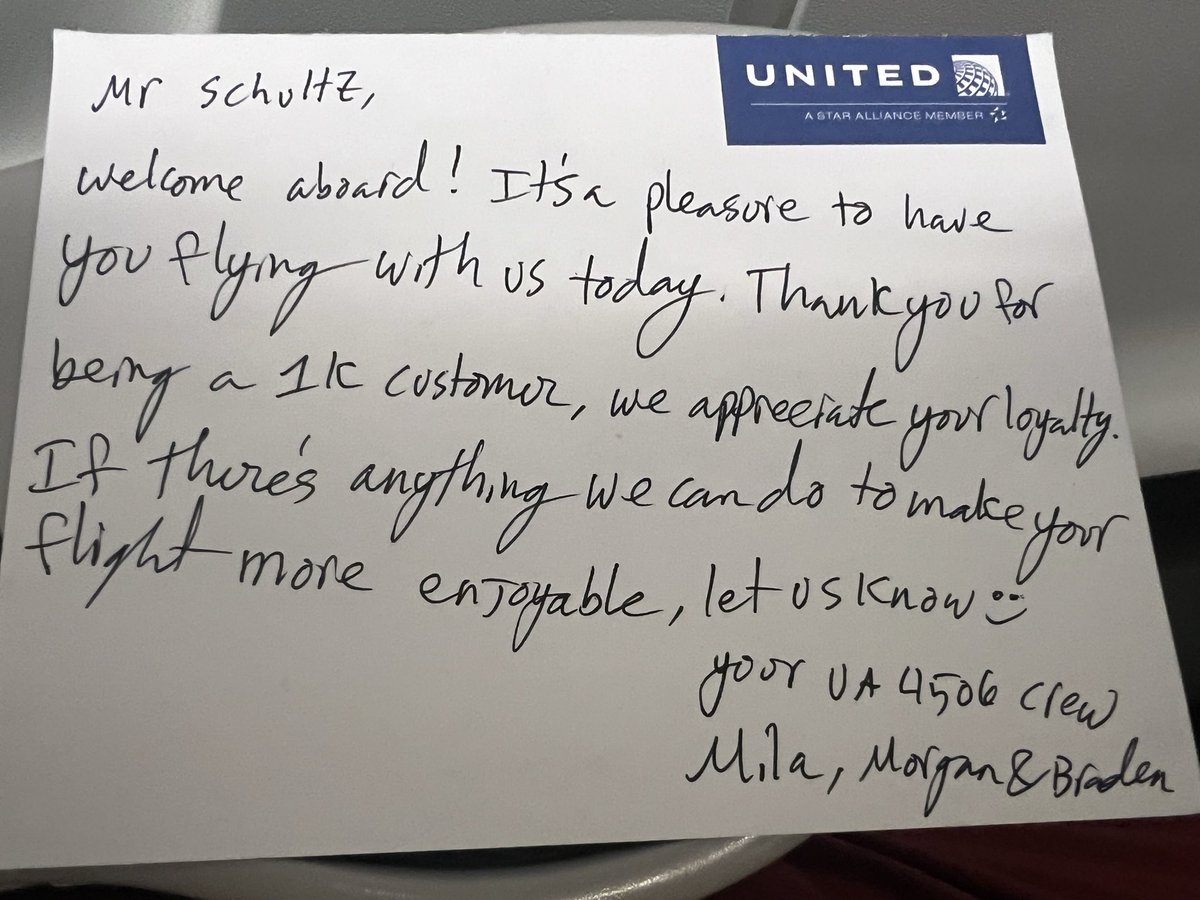 UNITED
A STAR ALLIANCE MEMBER
Mr Schultz,
Welcome aboard! It's a pleasure to have
you flying with us today. Thank you for
being a 1K customer, we appreciate your loyalty.
If there's anything we can do to make your
flight more enjoyable, let us know
your UA 4506 crew
Mila, Morgan & Braden